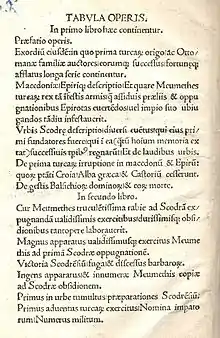 TABVLA OPERIS.
In primo libro hæc continentur.
Præfatio operis.
Exordiū eiusdē: in quo prima turcaꝝ origo: ac Otto
manæ familiæ auctores: eorumqȝ successus: fortuneqȝ
afflatus longa serie continentur.
Macedoniæ: Epiriqȝ descriptio: Et quare Meumethes
turcaꝝ rex eā festis armisqȝ assiduis præliis & oppu
gnationibus Epirotas euertēdos: uel impio suo iubu
gandos rādiu infestauerit.
Vrbis Scodræ descriptio: diuersi euētus: qui eius pri
mi fundatores fuere: qui ī ea (qȝtū hoium memoria ex
tat) successuris tpibꝰ regnarūt: Et de laudibus urbis.
De prima turcaꝝ irruptione in macedoniā & Epirū:
quoꝝ pāti Croia: Alba græca: & Castoriū cesserunt.
De gestis Balsichoꝝ dominoꝝ: & eoꝝ morte.
In secundo libro.
Cur Meumethes truculētissima rabie ad Scodrā ex
pugnandā ualidissimis exercitibus: durissimisqȝ ob
sidionibus tantopere laborauerit.
Magnus apparatus ualidissimusqȝ exercitus Meume
this ad primā Scodræ oppugnationē.
Victoria Scodrēsiū: fuga: & discessus barbaroꝝ.
Ingens apparatus: & innumeræ Meumethis copiæ
ad Scodræ obsidionem.
Primus in urbe tumultus præparationes Scodrēsiū:
Primus aduentus turcaꝝ exercitus: Nomina impato
rum: Numerus militum.